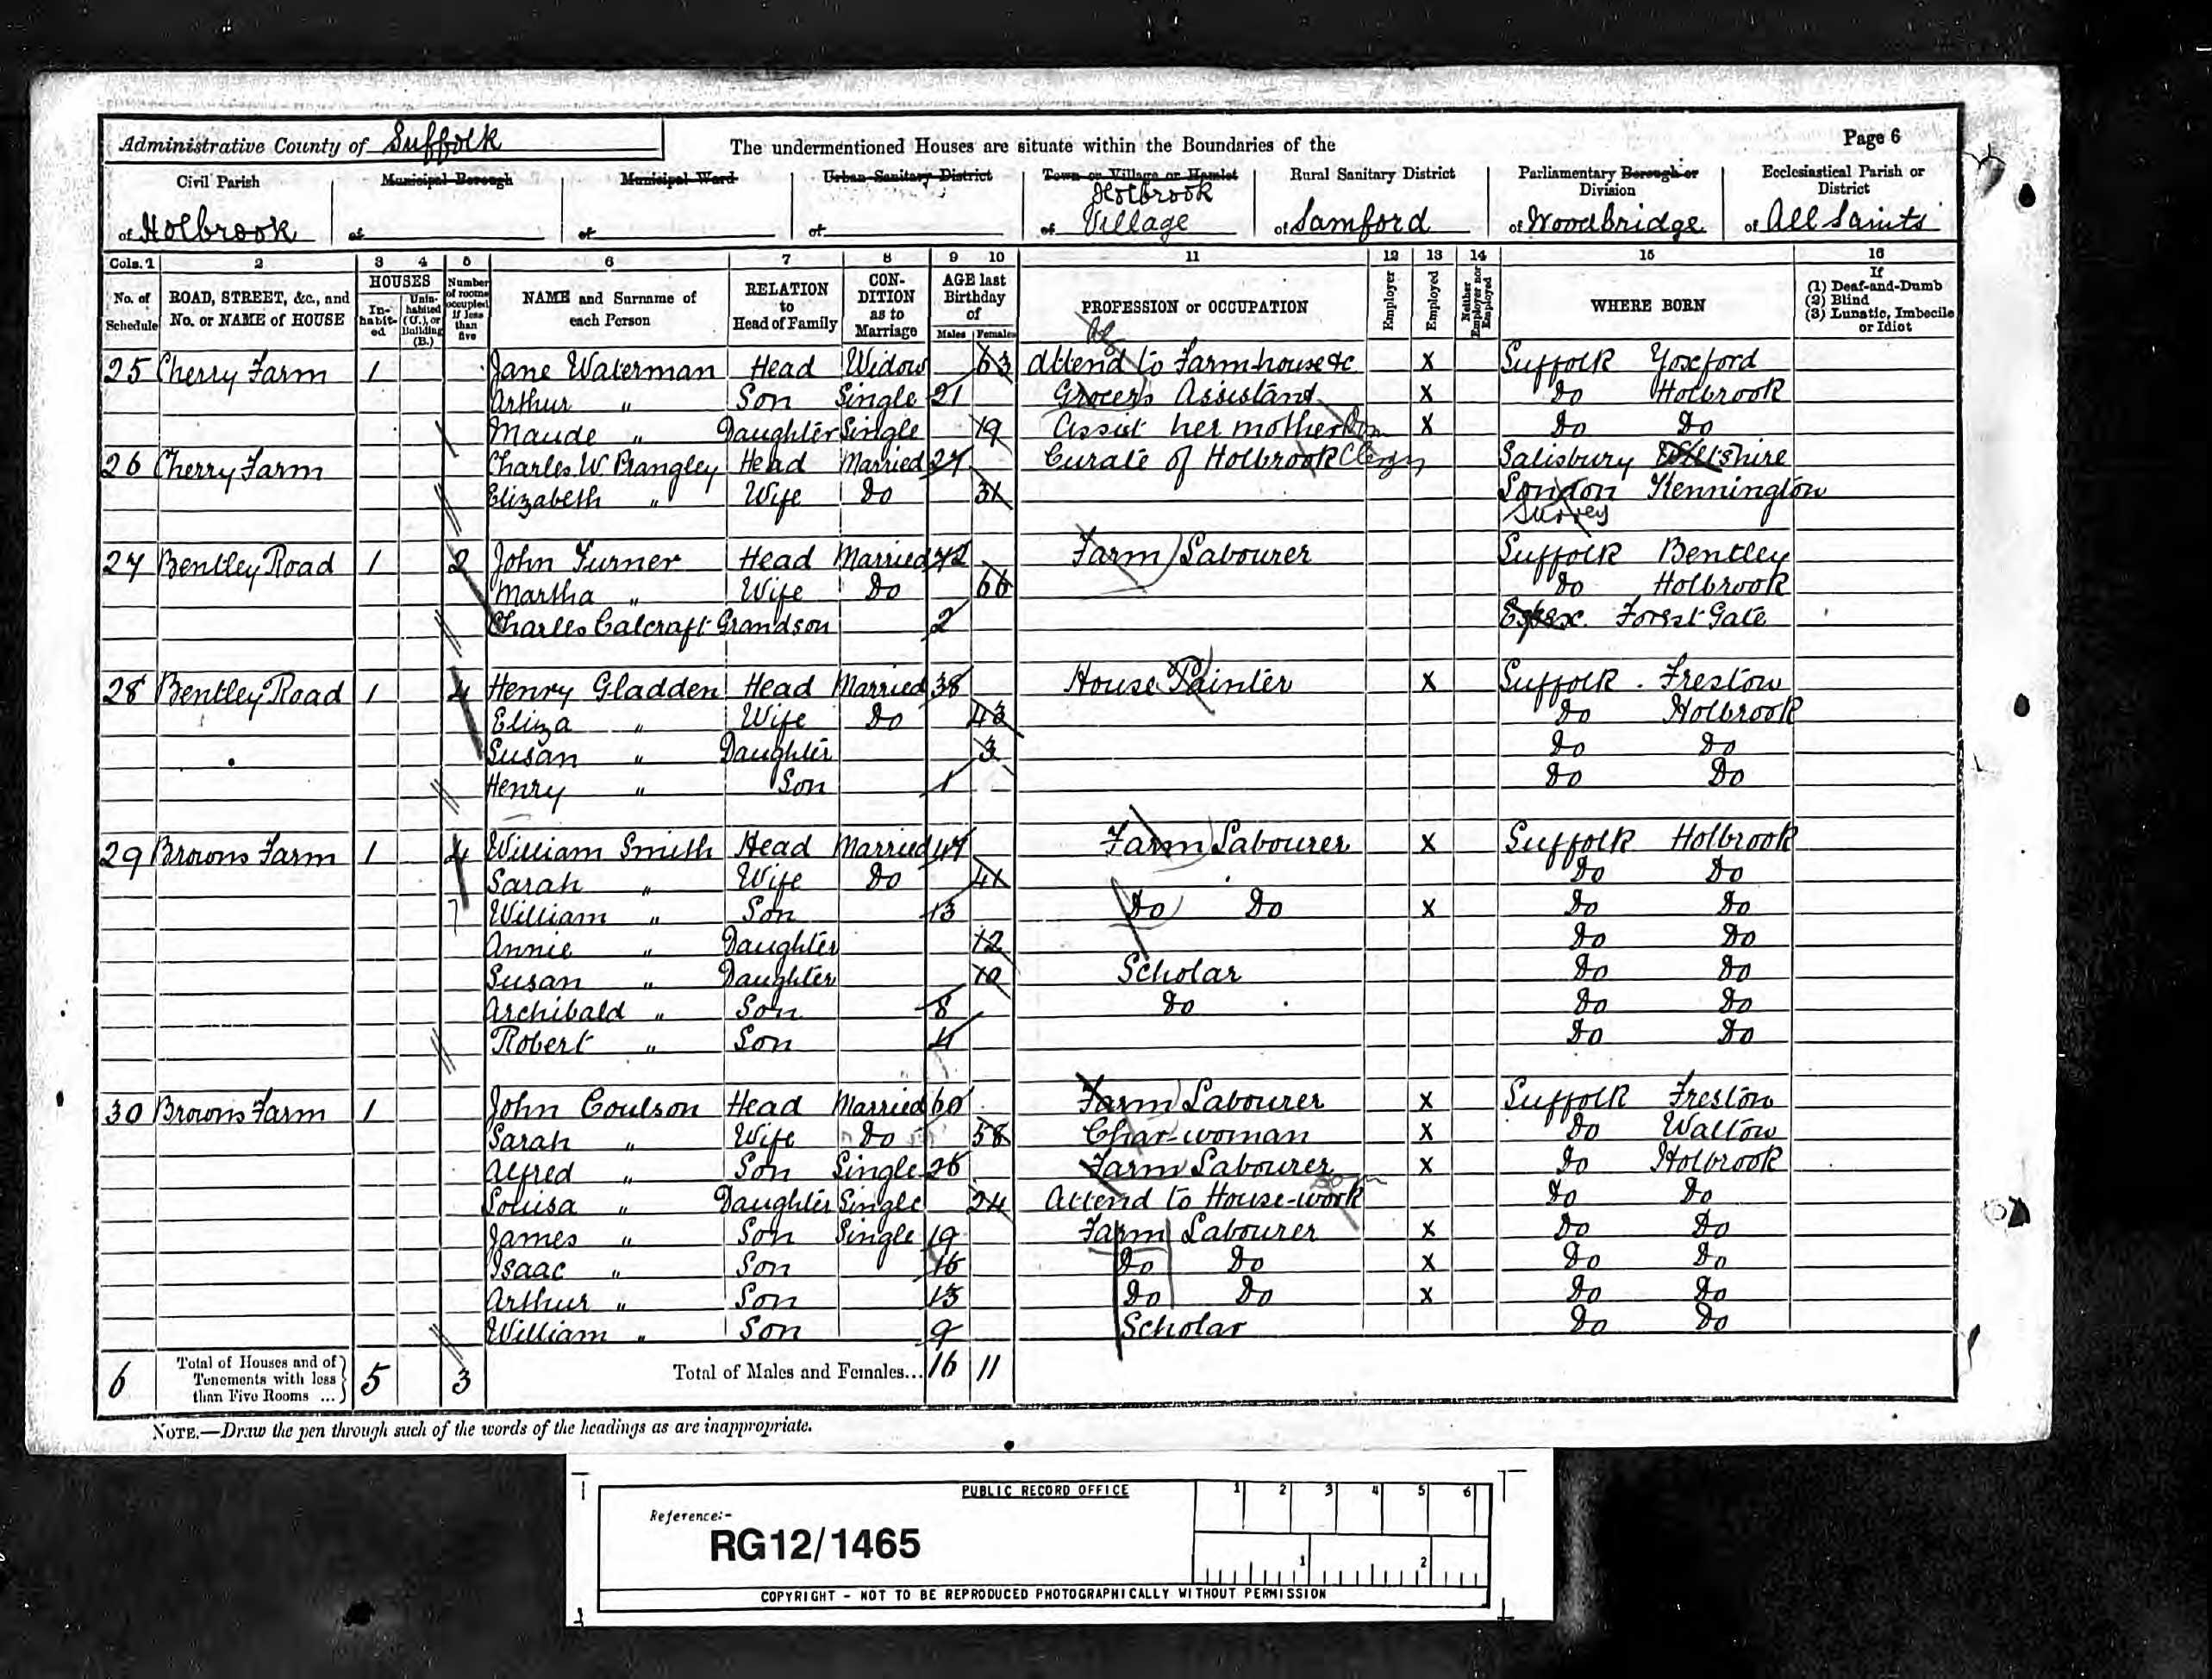 Administrative County of Suffolk
The undermentioned Houses are situate within the Boundaries of the
Page 6
Civil Parish
of Holbrook
Municipal Borough
of
Municipal Ward
of
Urban Sanitary District
of
Town or Village or Hamlet
of Holbrook Village
Rural Sanitary District
of Samford
Parliamentary Borough or Division
of Woodbridge
Ecclesiastical Parish or District
of All Saints
Cols. 1 2 3 4 5 6 7 8 9 10 11 12 13 14 15 16
No. of Schedule
ROAD, STREET, &c., and No. or NAME of HOUSE
HOUSES
In-habit-ed
Unin-habited (U.), or Building (B.)
Number of rooms occupied if less than five
NAME and Surname of each Person
RELATION to Head of Family
CON-DITION as to Marriage
AGE last Birthday of
Males Females
PROFESSION or OCCUPATION
Employer
Employed
Neither Employer nor Employed
WHERE BORN
If
(1) Deaf-and-Dumb
(2) Blind
(3) Lunatic, Imbecile or Idiot
25 Cherry Farm 1 Jane Waterman Head Widow 63 Attend to Farm-house &c X Suffolk Yoxford
Arthur " Son Single 21 Grocers Assistant X Do Holbrook
Maude " Daughter Single 19 Assist her mother Dom X Do Do
26 Cherry Farm Charles W. Prangley Head Married 27 Curate of Holbrook Clergy Salisbury Wiltshire
Elizabeth " Wife Do 31 London Kennington
Surrey
27 Bentley Road 1 2 John Turner Head Married 72 Farm Labourer Suffolk Bentley
Martha " Wife Do 66 Do Holbrook
Charles Calcraft Grandson 2 Essex. Forest Gate
28 Bentley Road 1 4 Henry Gladden Head Married 38 House Painter X Suffolk. Freston
Eliza " Wife Do 43 Do Holbrook
Susan " Daughter 3 Do Do
Henry " Son 1 Do Do
29 Browns Farm 1 4 William Smith Head Married 47 Farm Labourer X Suffolk Holbrook
Sarah " Wife Do 41 Do Do
7 William " Son 13 Do Do X Do Do
Annie " Daughter 12 Do Do
Susan " Daughter 10 Scholar Do Do
Archibald " Son 8 Do Do Do
Robert " Son 4 Do Do
30 Browns Farm 1 John Coulson Head Married 60 Farm Labourer X Suffolk Freston
Sarah " Wife Do 58 Char-woman X Do Walton
Alfred " Son Single 26 Farm Labourer X Do Holbrook
Louisa " Daughter Single 24 Attend to House-work Do Do
James " Son Single 19 Farm Labourer X Do Do
Isaac " Son 16 Do Do X Do Do
Arthur " Son 13 Do Do X Do Do
William " Son 9 Scholar Do Do
6 Total of Houses and of Tenements with less than Five Rooms ... 5 3 Total of Males and Females... 16 11
NOTE.—Draw the pen through such of the words of the headings as are inappropriate.
PUBLIC RECORD OFFICE
1 2 3 4 5 6
Reference:-
RG12/1465
1 2
COPYRIGHT - NOT TO BE REPRODUCED PHOTOGRAPHICALLY WITHOUT PERMISSION